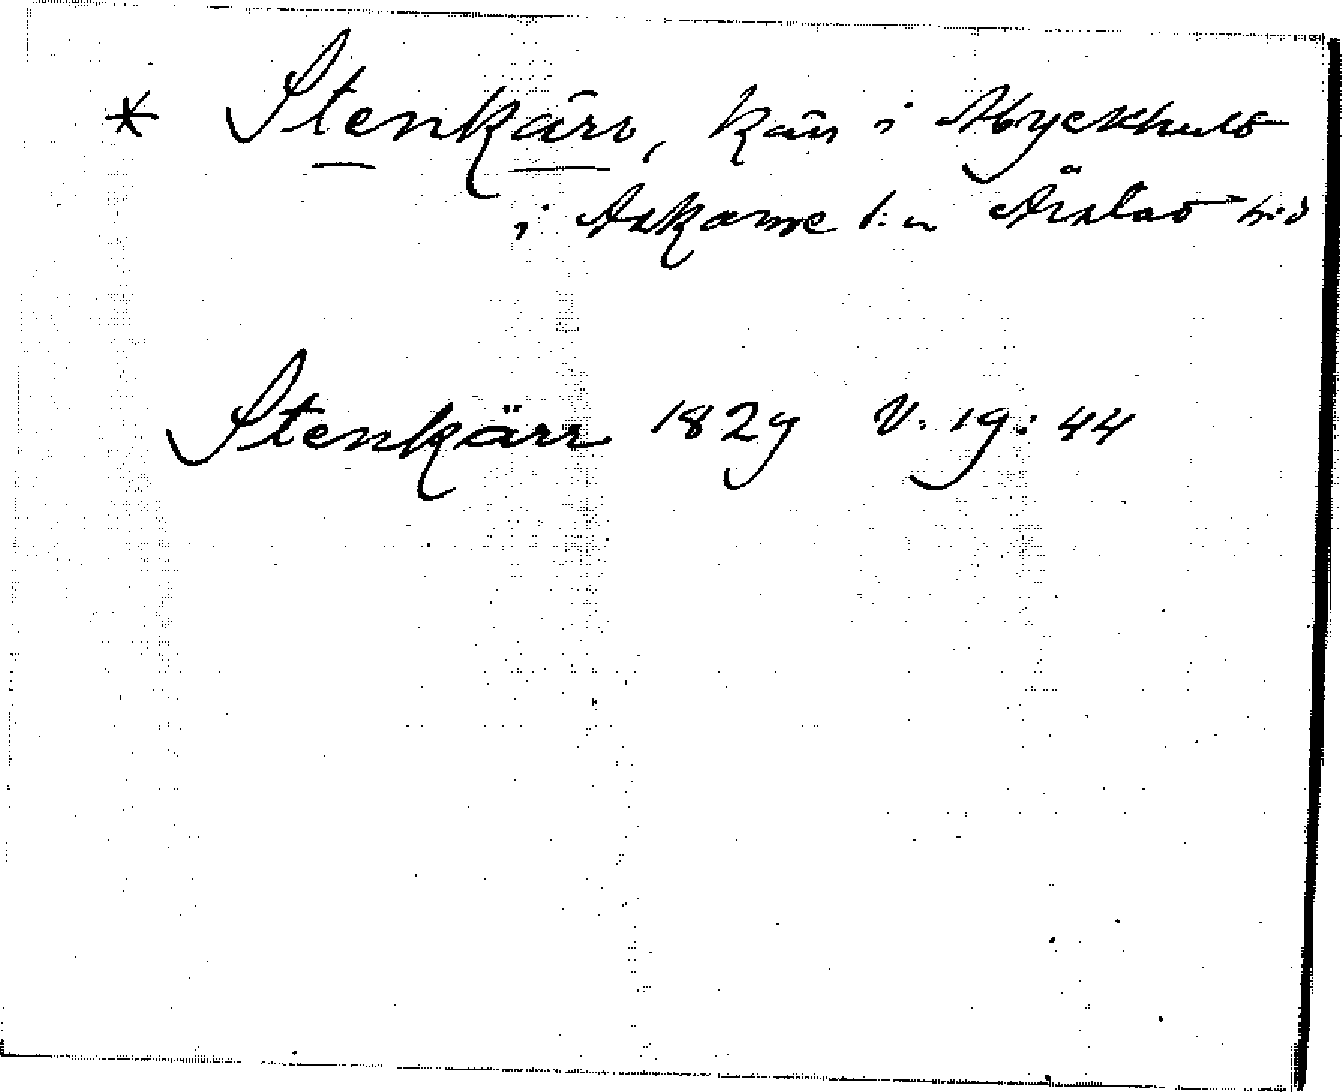 * Stenkärr, kärr i Myckhult
i Askome s:n Årstad h:d
Stenkärr 1829 V. 19: 44